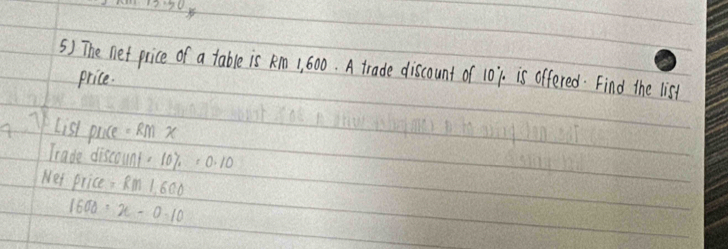 5) The net price of a table is RM 1,600. A trade discount of 10% is offered. Find the list
price.
List price = RM x
Trade discount = 10% = 0.10
Net price = RM 1,600
1600 = x - 0.10